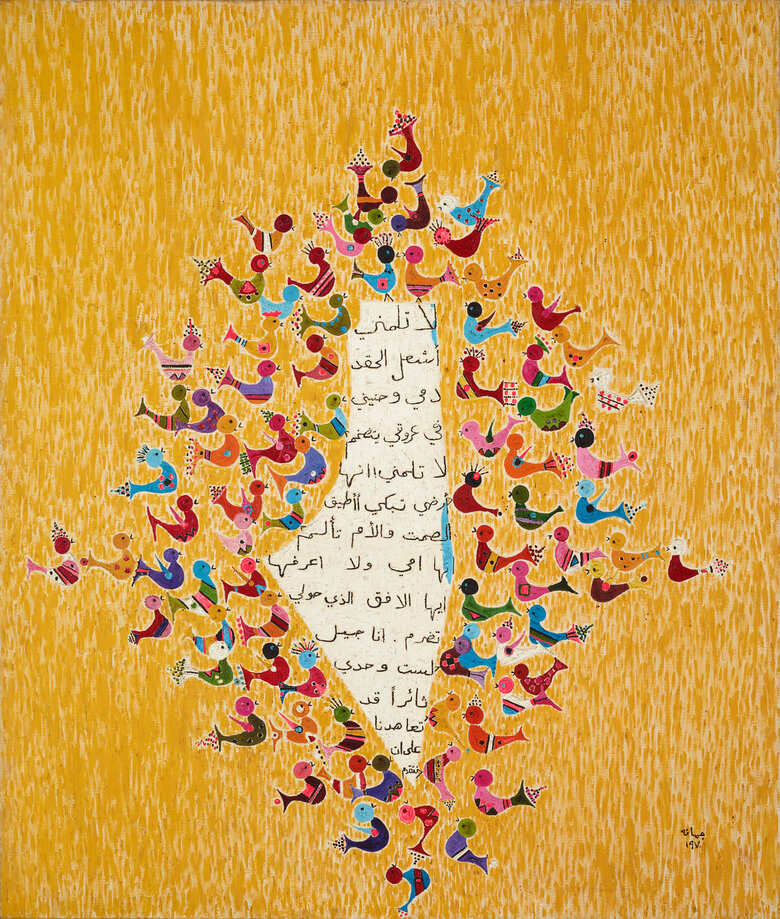 لا تلمني
أشعل الحقد
دمي وحنيني
في عروقي يتضخم
لا تلمني!! انها
أرضي تبكي أأطيق
الصمت والأم تألم
إنها امي ولا اعرفها
ايها الافق الذي حولي
تضرم . انا جيل
لست وحدي
ثائراً قد
تعاهدنا
على ان
جمانه
١٩٧٠